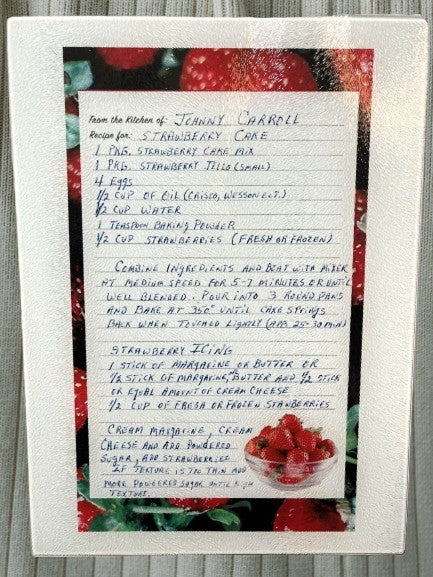 From the Kitchen of: JOHNNY CARROLL
Recipe for: STRAWBERRY CAKE
1 PKG. STRAWBERRY CAKE MIX
1 PKG. STRAWBERRY JELLO (SMALL)
4 EGGS
1/2 CUP OF OIL (CRISCO, WESSON ECT.)
1/2 CUP WATER
1 TEASPOON BAKING POWDER
1/2 CUP STRAWBERRIES (FRESH OR FROZEN)
COMBINE INGREDIENTS AND BEAT WITH MIXER
AT MEDIUM SPEED FOR 5-7 MINUTES OR UNTIL
WELL BLENDED. POUR INTO 3 ROUND PANS
AND BAKE AT 350° UNTIL CAKE SPRINGS
BACK WHEN TOUCHED LIGHTLY (APP. 25-30 MIN)
STRAWBERRY ICING
1 STICK OF MARGARINE OR BUTTER OR
1/2 STICK OF MARGARINE, BUTTER AND 1/2 STICK
OR EQUAL AMOUNT OF CREAM CHEESE
1/2 CUP OF FRESH OR FROZEN STAWBERRIES
CREAM MARGARINE, CREAM
CHEESE AND ADD POWDERED
SUGAR, ADD STRAWBERRIES
IF TEXTURE IS TOO THIN ADD
MORE POWDERED SUGAR UNTIL
TEXTURE.